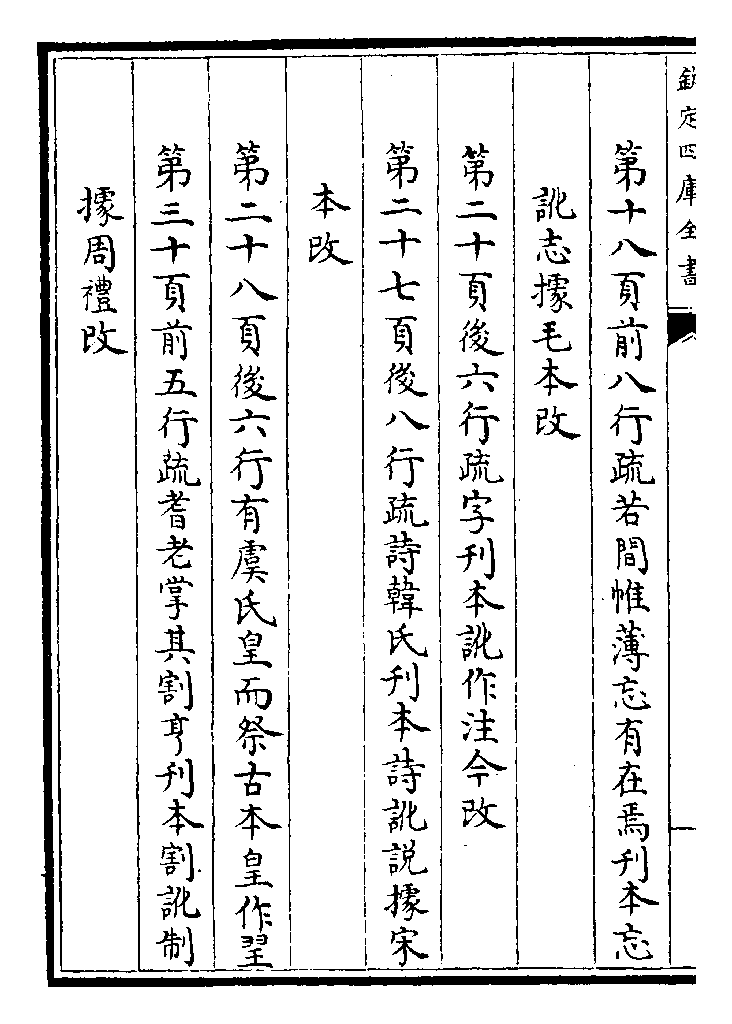 欽定四庫全書
第十八頁前八行疏若間帷薄忘有在焉刊本忘
訛志據毛本改
第二十頁後六行疏字刊本訛作注今改
第二十七頁後八行疏詩韓氏刊本詩訛説據宋
本改
第二十八頁後六行有虞氏皇而祭古本皇作翌
第三十頁前五行疏耆老掌其割亨刊本割訛制
據周禮改